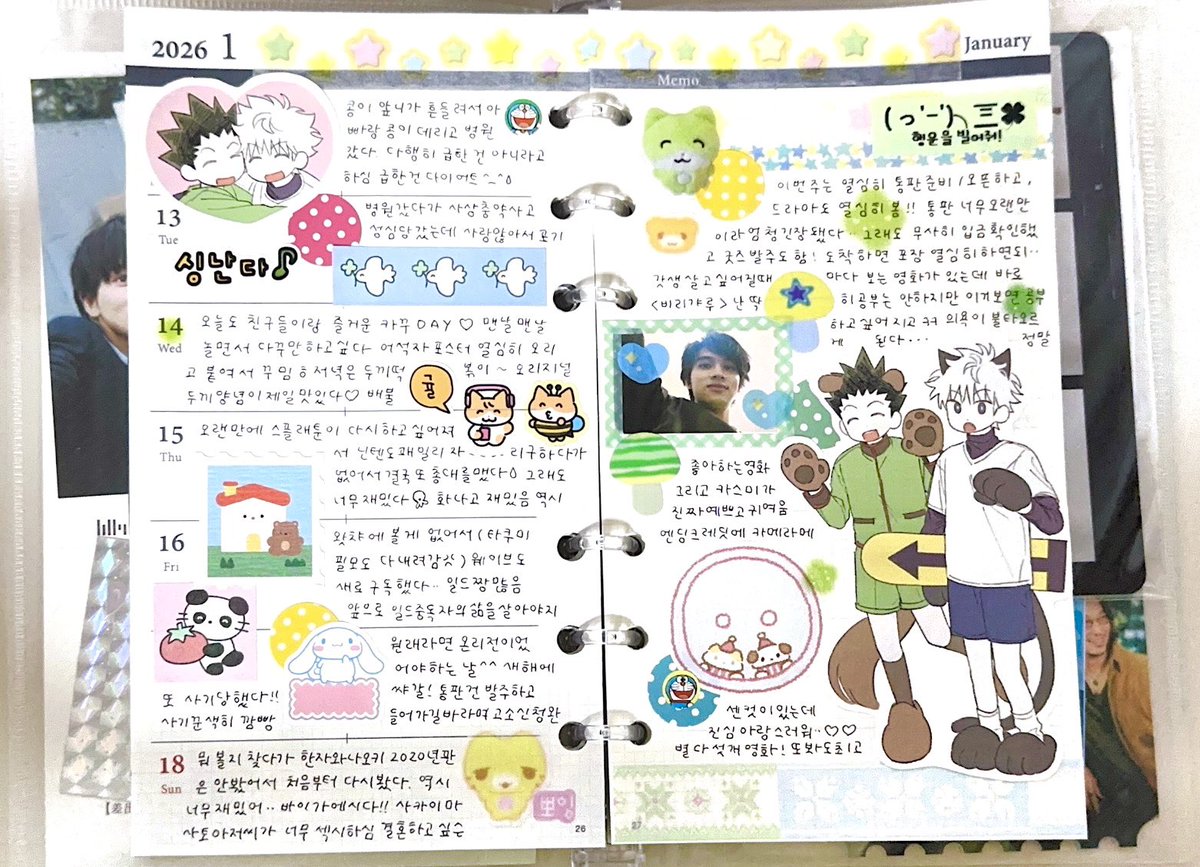 2026 1
콩이 앞니가 흔들려서 아
빠랑 콩이 데리고 병원
갔다 다행히 급한 건 아니라고
하심 급한건 다이어트^_^
13
Tue
병원갔다가 사상충약사고
성심당 갔는데 사랑않아서 포기
싱난다♪
14
Wed
오늘도 친구들이랑 즐거운 카꾸 DAY ♡ 맨날맨날
놀면서 다꾸만하고싶다 어석자 포스터 열심히 오리
고 붙여서 꾸밈 ㅎ 저녁은 두끼떡볶이 ~ 오리지널
두끼양념이 제일 맛있다♡ 배불
귤
15
Thu
오랜만에 스플래툰이 다시하고싶어져
서 닌텐도패밀리 자 리구하다가
없어서 결국 또 총대를 맸다 그래도
너무재밌다 화나고 재밌음 역시
16
Fri
왓챠에 볼게 없어서 (타쿠미
필모도 다 내려감싯) 웨이브도
새로 구독했다.. 일드짱많음
앞으로 일드중독자의삶을살아야지
원래라면 온리전이었
어야하는 날^^ 새해에
쌰갈! 통판건 발주하고
들어가길바라며 고소신청완
또 사기당했다!!
사기꾼색히 깜빵
18
Sun
뭐 볼지 찾다가 한자와나오키 2020년판
은 안봤어서 처음부터 다시봤다. 역시
너무재밌어.. 바이가에시다!! 사카이마
사토아저씨가 너무 섹시하심 결혼하고 싶은
뽀잉
26
January
Memo
(っ'-')╮三
행운을 빌어줘!
이번주는 열심히 통판준비/오픈하고,
드라마도 열심히 봄!! 통판 너무오랜만
이라 엄청긴장됐다.. 그래도 무사히 입금확인했
고 굿즈발주도함! 도착하면 포장 열심히하면되..
갓생살고싶어질때 마다 보는 영화가 있는데 바로
<비리갸루> 난 딱히공부는 안하지만 이거보면 공부
하고싶어지고 ㅋㅋ 의욕이 불타오르
게 된다... 정말
좋아하는영화
그리고 카스미가
진짜예쁘고귀여움
엔딩크레딧에 카메라에
센컷이있는데
진심 아랑스러워..♡♡
별 다섯개 영화! 또봐도최고
27